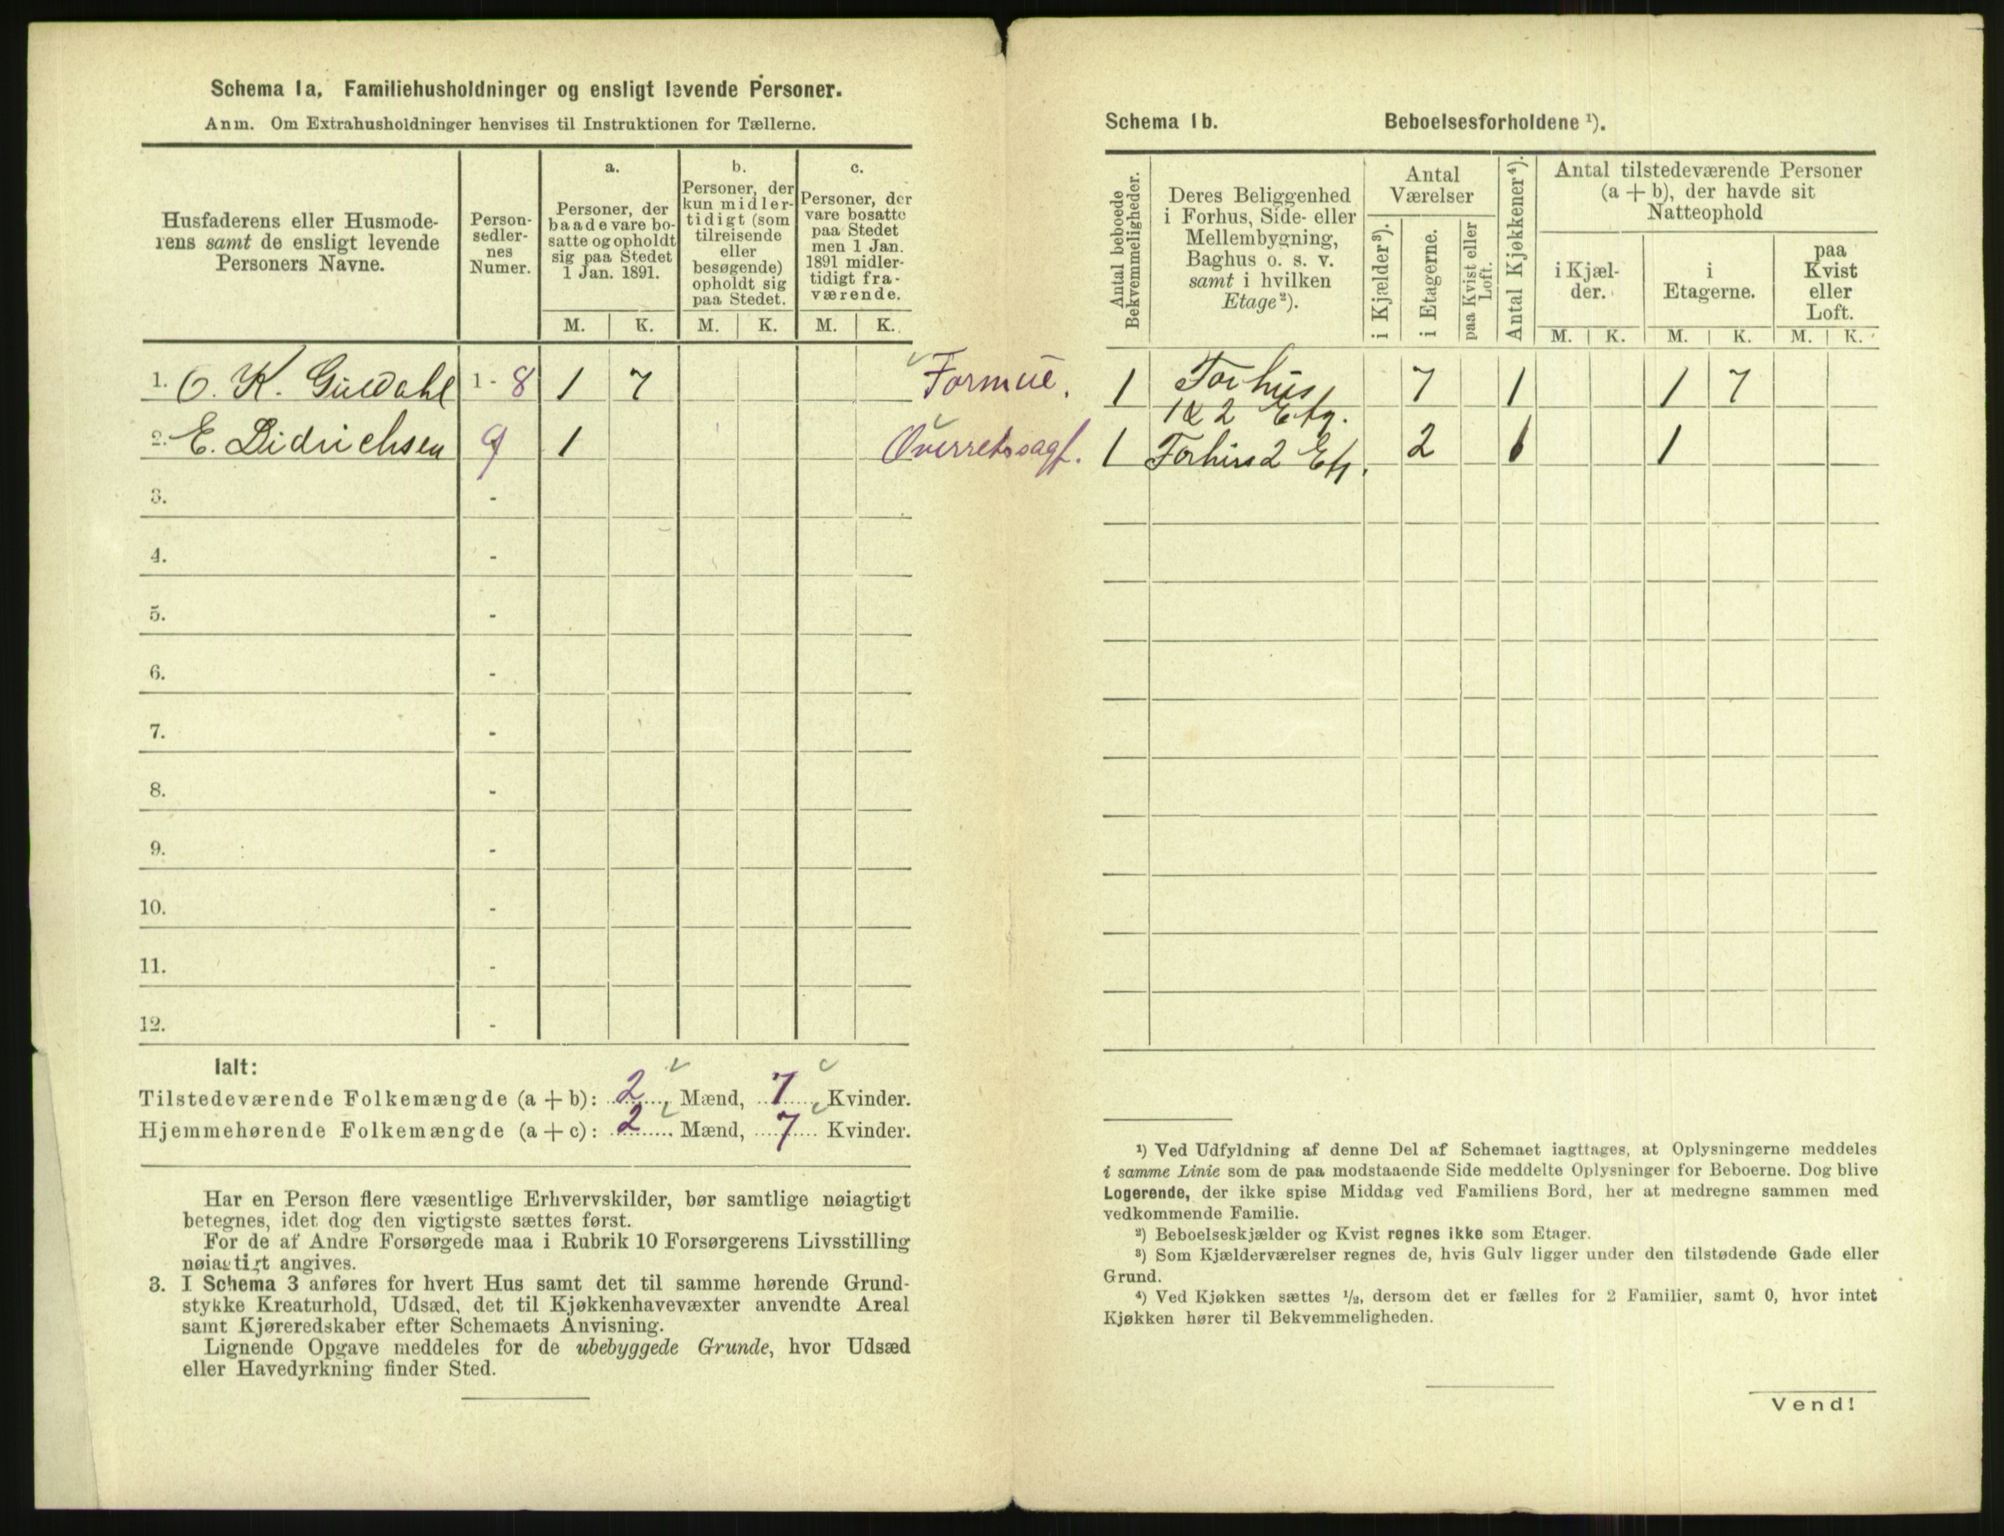 Schema 1a. Familiehusholdninger og ensligt levende Personer.
Anm. Om Extrahusholdninger henvises til Instruktionen for Tællerne.
Husfaderens eller Husmoderens samt de ensligt levende Personers Navne.
Personsedlernes Numer.
a. Personer, der baade vare bosatte og opholdt sig paa Stedet 1 Jan. 1891.
b. Personer, der kun midlertidigt (som tilreisende eller besøgende) opholdt sig paa Stedet.
c. Personer, der vare bosatte paa Stedet men 1 Jan. 1891 midlertidigt fraværende.
M. K. M. K. M. K.
1. O. K. Guldahl 1 - 8 1 7 Formue.
2. E. Didrichsen 9 1 Overretssagf.
3. -
4. -
5. -
6. -
7. -
8. -
9. -
10. -
11. -
12. -
Ialt:
Tilstedeværende Folkemængde (a + b): 2 Mænd, 7 Kvinder.
Hjemmehørende Folkemængde (a + c): 2 Mænd, 7 Kvinder.
Har en Person flere væsentlige Erhvervskilder, bør samtlige nøiagtigt
betegnes, idet dog den vigtigste sættes først.
For de af Andre Forsørgede maa i Rubrik 10 Forsørgerens Livsstilling
nøiagtigt angives.
3. I Schema 3 anføres for hvert Hus samt det til samme hørende Grund-
stykke Kreaturhold, Udsæd, det til Kjøkkenhavevæxter anvendte Areal
samt Kjøreredskaber efter Schemaets Anvisning.
Lignende Opgave meddeles for de ubebyggede Grunde, hvor Udsæd
eller Havedyrkning finder Sted.
Schema 1b. Beboelsesforholdene ¹).
Antal beboede Bekvemmeligheder.
Deres Beliggenhed i Forhus, Side- eller Mellembygning, Baghus o. s. v. samt i hvilken Etage ²).
Antal Værelser
i Kjælder ³).
i Etagerne.
paa Kvist eller Loft.
Antal Kjøkkener ⁴).
Antal tilstedeværende Personer (a + b), der havde sit Natteophold
i Kjælder.
i Etagerne.
paa Kvist eller Loft.
M. K. M. K. M. K.
1 Forhus 1 & 2 Etg. 7 1 1 7
1 Forhus 2 Etg. 2 1 1
¹) Ved Udfyldning af denne Del af Schemaet iagttages, at Oplysningerne meddeles
i samme Linie som de paa modstaaende Side meddelte Oplysninger for Beboerne. Dog blive
Logerende, der ikke spise Middag ved Familiens Bord, her at medregne sammen med
vedkommende Familie.
²) Beboelseskjælder og Kvist regnes ikke som Etager.
³) Som Kjælderværelser regnes de, hvis Gulv ligger under den tilstødende Gade eller
Grund.
⁴) Ved Kjøkken sættes ½, dersom det er fælles for 2 Familier, samt 0, hvor intet
Kjøkken hører til Bekvemmeligheden.
Vend!